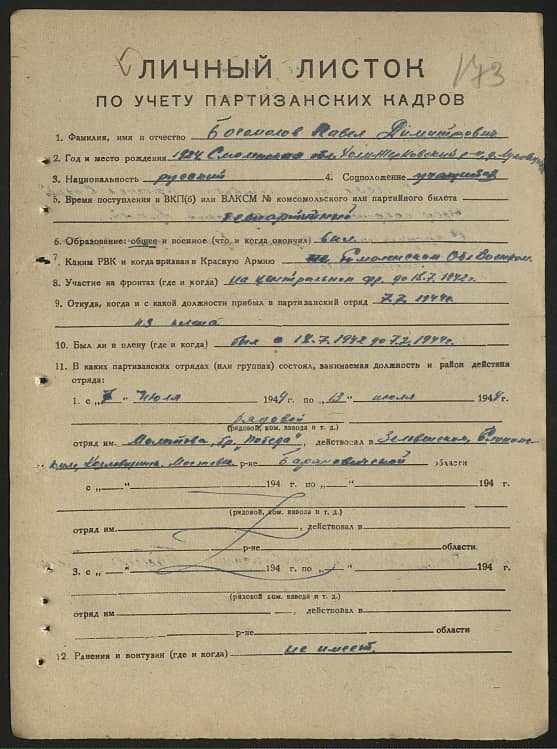 173
ЛИЧНЫЙ ЛИСТОК
ПО УЧЕТУ ПАРТИЗАНСКИХ КАДРОВ
1. Фамилия, имя и отчество Богомолов Павел Димитрович
2. Год и место рождения 1924 Смоленская обл.
3. Национальность русский 4. Соцположение учащийся
5. Время поступления в ВКП(б) или ВЛКСМ № комсомольского или партийного билета
беспартийный
6. Образование: общее и военное (что и когда окончил) 6 кл.
7. Каким РВК и когда призван в Красную Армию
8. Участие на фронтах (где и когда) на центральном фр. до 15.7.1942г.
9. Откуда, когда и с какой должности прибыл в партизанский отряд 7.7.1944г.
из плена
10. Был ли в плену (где и когда) был с 12.7.1942 до 7.2.1944г.
11. В каких партизанских отрядах (или группах) состоял, занимаемая должность и район действия
отряда:
1. с „7“ июля 1944 г. по „13“ июля 1944 г.
рядовой
(рядовой, ком. взвода и т. д.)
отряд им. Молотова, бр. "Победа", действовал в Зельвенском,
Козловщин. Мостовск. р-не Барановичской области
с „ “ 194 г. по „ “ 194 г.
(рядовой, ком. взвода и т. д.)
отряд им. , действовал в
р-не области.
3. с „ “ 194 г. по „ “ 194 г.
(рядовой, ком. взвода и т. д.)
отряд им. , действовал в
р-не области
12. Ранения и контузии (где и когда) не имеет.